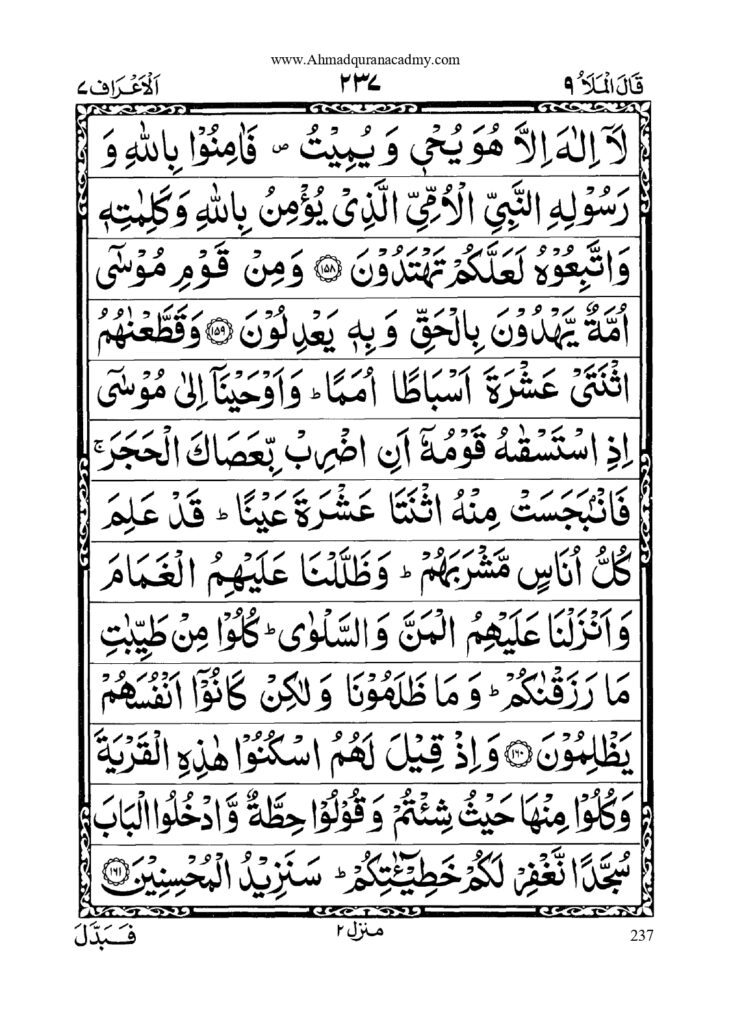 www.Ahmadquranacadmy.com
قَالَ الْمَلَاُ ۹ ۲۳۷ اَلْاَعْرَاف ۷
لَاۤ اِلٰهَ اِلَّا هُوَ يُحْيٖ وَ يُمِيْتُ ۪ فَاٰمِنُوْا بِاللّٰهِ وَ
رَسُوْلِهِ النَّبِيِّ الْاُمِّيِّ الَّذِيْ يُؤْمِنُ بِاللّٰهِ وَ كَلِمٰتِهٖ
وَاتَّبِعُوْهُ لَعَلَّكُمْ تَهْتَدُوْنَ ۝۱۵۸ وَ مِنْ قَوْمِ مُوْسٰۤى
اُمَّةٌ يَّهْدُوْنَ بِالْحَقِّ وَ بِهٖ يَعْدِلُوْنَ ۝۱۵۹ وَ قَطَّعْنٰهُمُ
اثْنَتَيْ عَشْرَةَ اَسْبَاطًا اُمَمًا ؕ وَ اَوْحَيْنَاۤ اِلٰى مُوْسٰۤى
اِذِ اسْتَسْقٰىهُ قَوْمُهٗۤ اَنِ اضْرِبْ بِّعَصَاكَ الْحَجَرَ ۚ
فَانْۢبَجَسَتْ مِنْهُ اثْنَتَا عَشْرَةَ عَيْنًا ؕ قَدْ عَلِمَ
كُلُّ اُنَاسٍ مَّشْرَبَهُمْ ؕ وَ ظَلَّلْنَا عَلَيْهِمُ الْغَمَامَ
وَ اَنْزَلْنَا عَلَيْهِمُ الْمَنَّ وَ السَّلْوٰى ؕ كُلُوْا مِنْ طَيِّبٰتِ
مَا رَزَقْنٰكُمْ ؕ وَ مَا ظَلَمُوْنَا وَ لٰكِنْ كَانُوْۤا اَنْفُسَهُمْ
يَظْلِمُوْنَ ۝۱۶۰ وَ اِذْ قِيْلَ لَهُمُ اسْكُنُوْا هٰذِهِ الْقَرْيَةَ
وَ كُلُوْا مِنْهَا حَيْثُ شِئْتُمْ وَ قُوْلُوْا حِطَّةٌ وَّ ادْخُلُوا الْبَابَ
سُجَّدًا نَّغْفِرْ لَكُمْ خَطِيْٓـٰٔتِكُمْ ؕ سَنَزِيْدُ الْمُحْسِنِيْنَ ۝۱۶۱
منزل ۲ فَبَدَّلَ
237